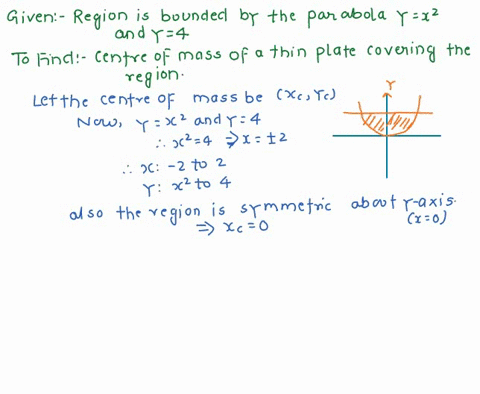 Given:- Region is bounded by the parabola Y=x²
and Y=4
To Find:- Centre of mass of a thin plate covering the
region.
Let the centre of mass be (xc, Yc)
Now, Y=x² and Y=4
∴ x²=4 ⇒ x=±2
∴ x: -2 to 2
Y: x² to 4
also the region is symmetric about Y-axis.
(x=0)
⇒ xc=0
Y